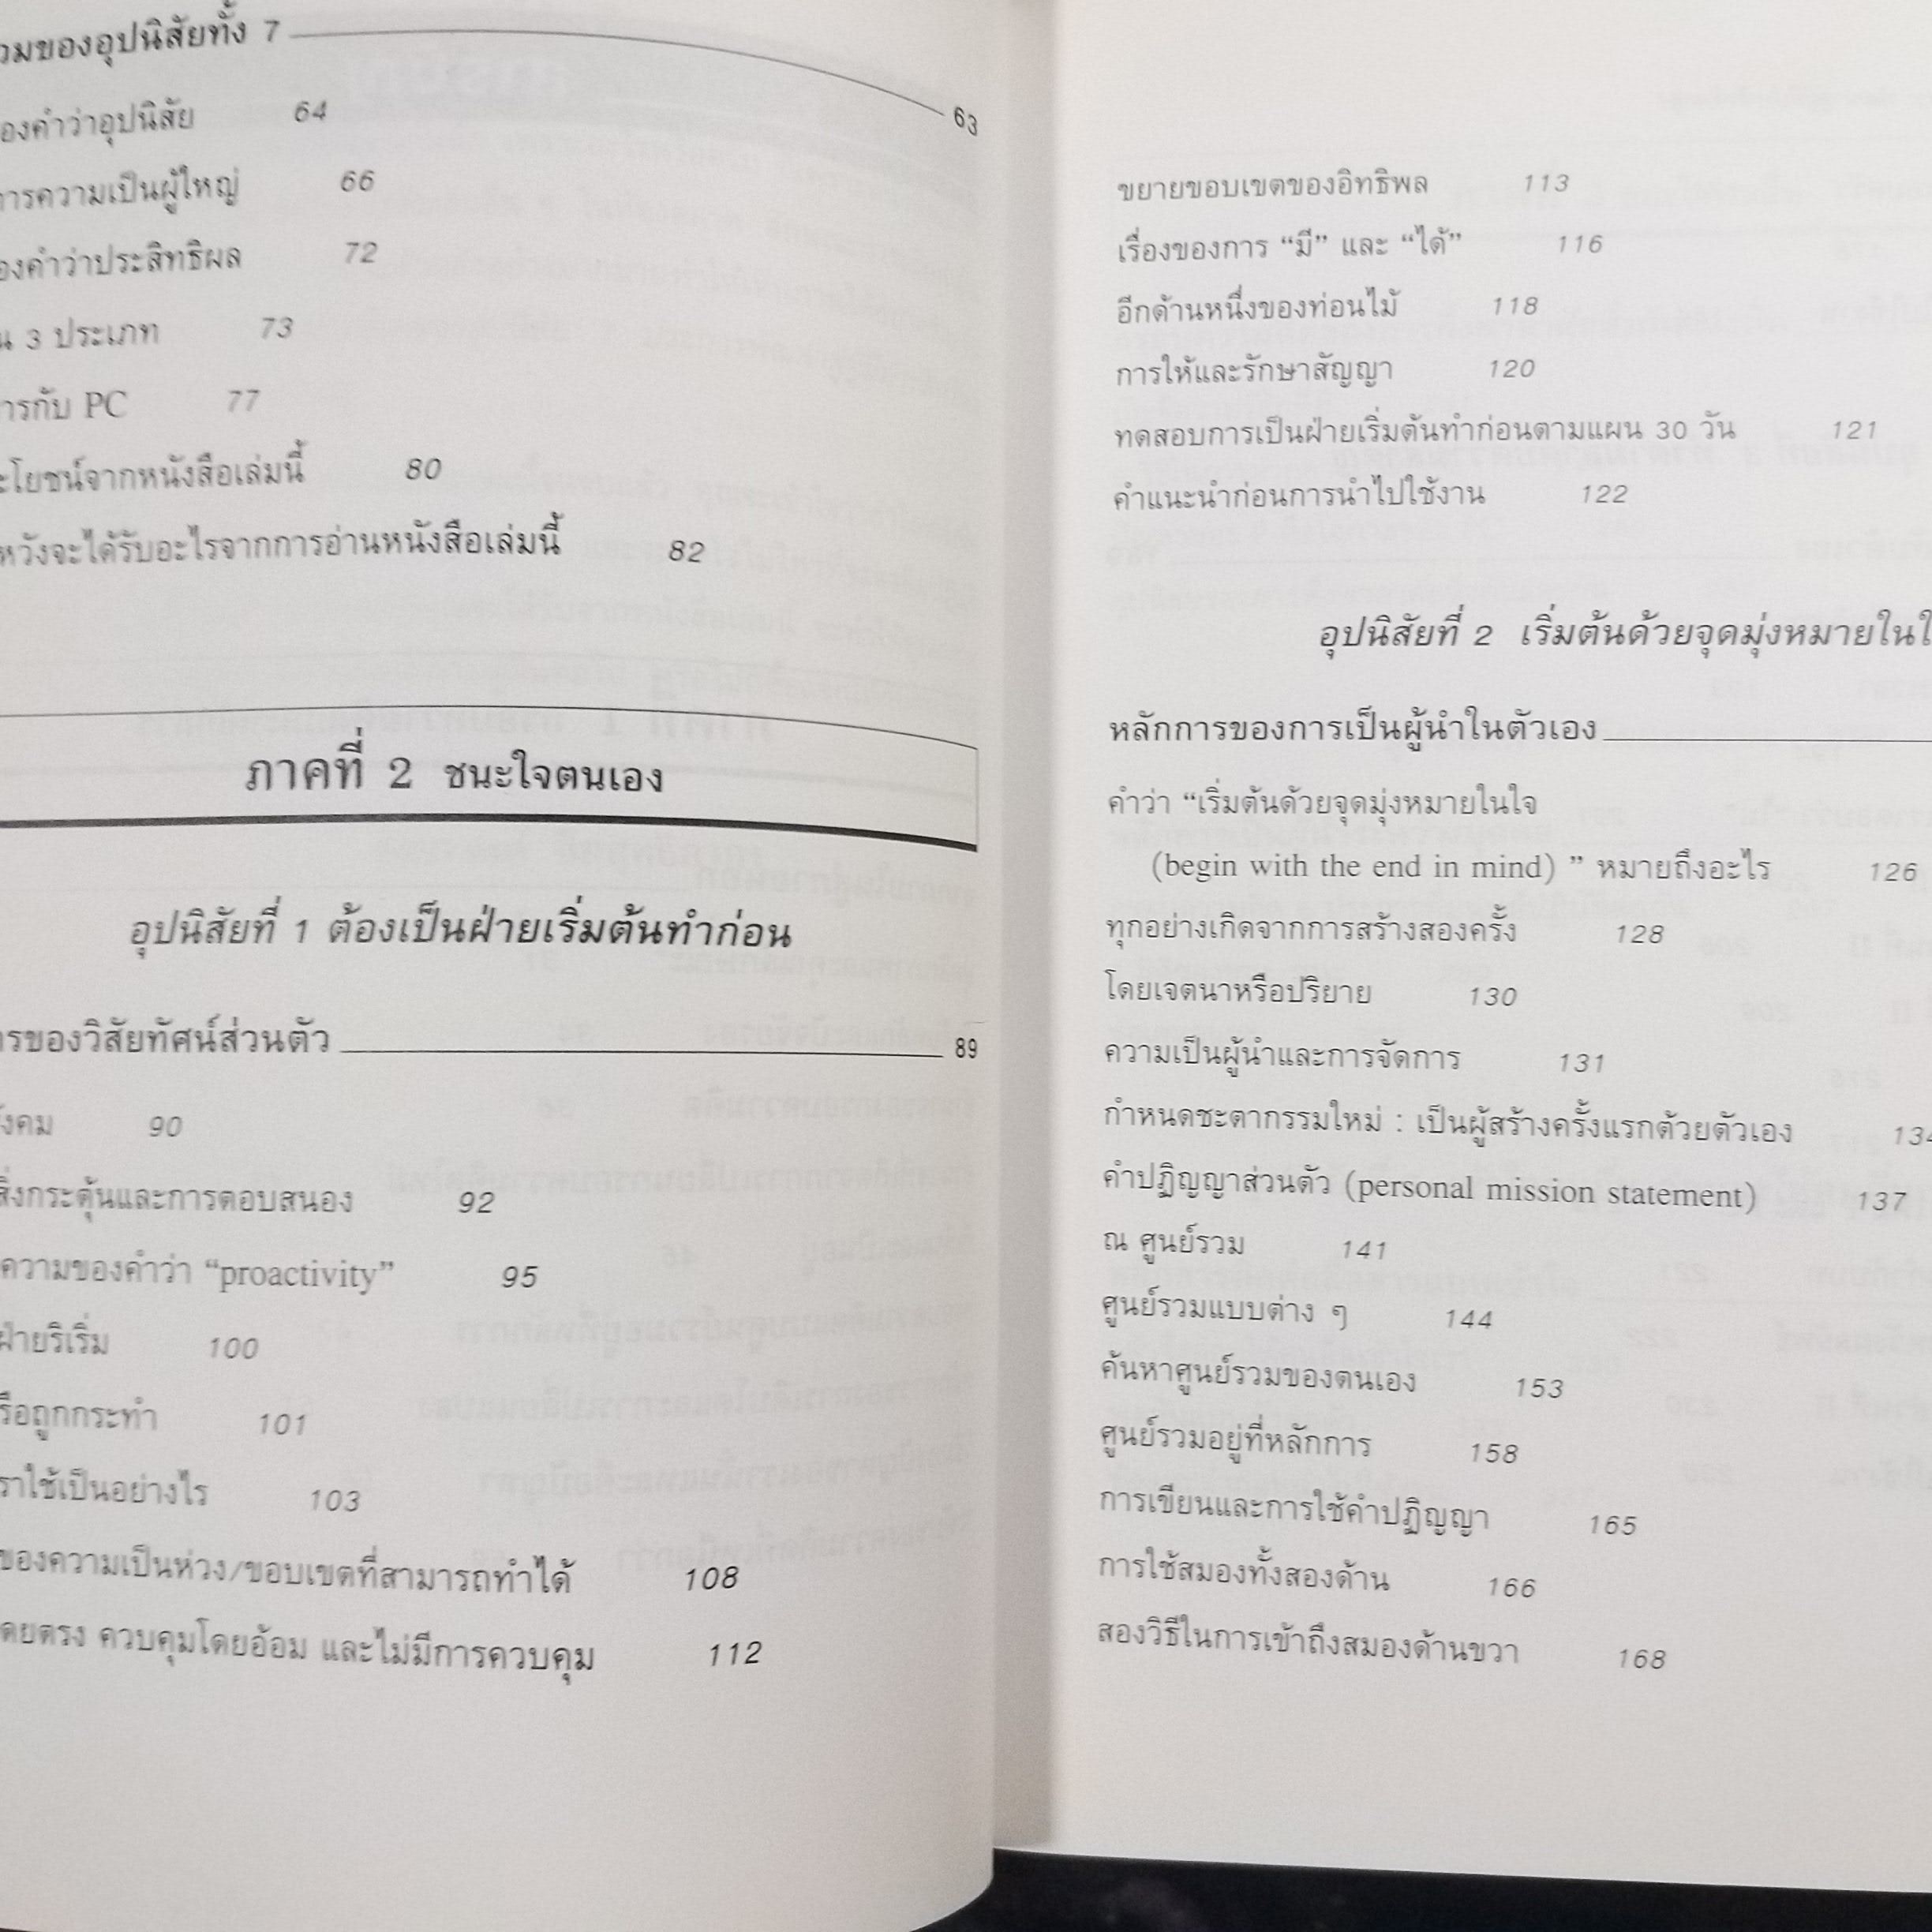 วมของอุปนิสัยทั้ง 7 63
องคำว่าอุปนิสัย 64
การความเป็นผู้ใหญ่ 66
องคำว่าประสิทธิผล 72
น 3 ประเภท 73
ารกับ PC 77
ะโยชน์จากหนังสือเล่มนี้ 80
หวังจะได้รับอะไรจากการอ่านหนังสือเล่มนี้ 82
ภาคที่ 2 ชนะใจตนเอง
อุปนิสัยที่ 1 ต้องเป็นฝ่ายเริ่มต้นทำก่อน
ารของวิสัยทัศน์ส่วนตัว 89
ังคม 90
สิ่งกระตุ้นและการตอบสนอง 92
ความของคำว่า “proactivity” 95
ฝ่ายริเริ่ม 100
รือถูกกระทำ 101
ราใช้เป็นอย่างไร 103
ของความเป็นห่วง/ขอบเขตที่สามารถทำได้ 108
ดยตรง ควบคุมโดยอ้อม และไม่มีการควบคุม 112
ขยายขอบเขตของอิทธิพล 113
เรื่องของการ “มี” และ “ได้” 116
อีกด้านหนึ่งของท่อนไม้ 118
การให้และรักษาสัญญา 120
ทดสอบการเป็นฝ่ายเริ่มต้นทำก่อนตามแผน 30 วัน 121
คำแนะนำก่อนการนำไปใช้งาน 122
อุปนิสัยที่ 2 เริ่มต้นด้วยจุดมุ่งหมายในใ
หลักการของการเป็นผู้นำในตัวเอง
คำว่า “เริ่มต้นด้วยจุดมุ่งหมายในใจ
(begin with the end in mind) ” หมายถึงอะไร 126
ทุกอย่างเกิดจากการสร้างสองครั้ง 128
โดยเจตนาหรือปริยาย 130
ความเป็นผู้นำและการจัดการ 131
กำหนดชะตากรรมใหม่ : เป็นผู้สร้างครั้งแรกด้วยตัวเอง 134
คำปฏิญญาส่วนตัว (personal mission statement) 137
ณ ศูนย์รวม 141
ศูนย์รวมแบบต่าง ๆ 144
ค้นหาศูนย์รวมของตนเอง 153
ศูนย์รวมอยู่ที่หลักการ 158
การเขียนและการใช้คำปฏิญญา 165
การใช้สมองทั้งสองด้าน 166
สองวิธีในการเข้าถึงสมองด้านขวา 168